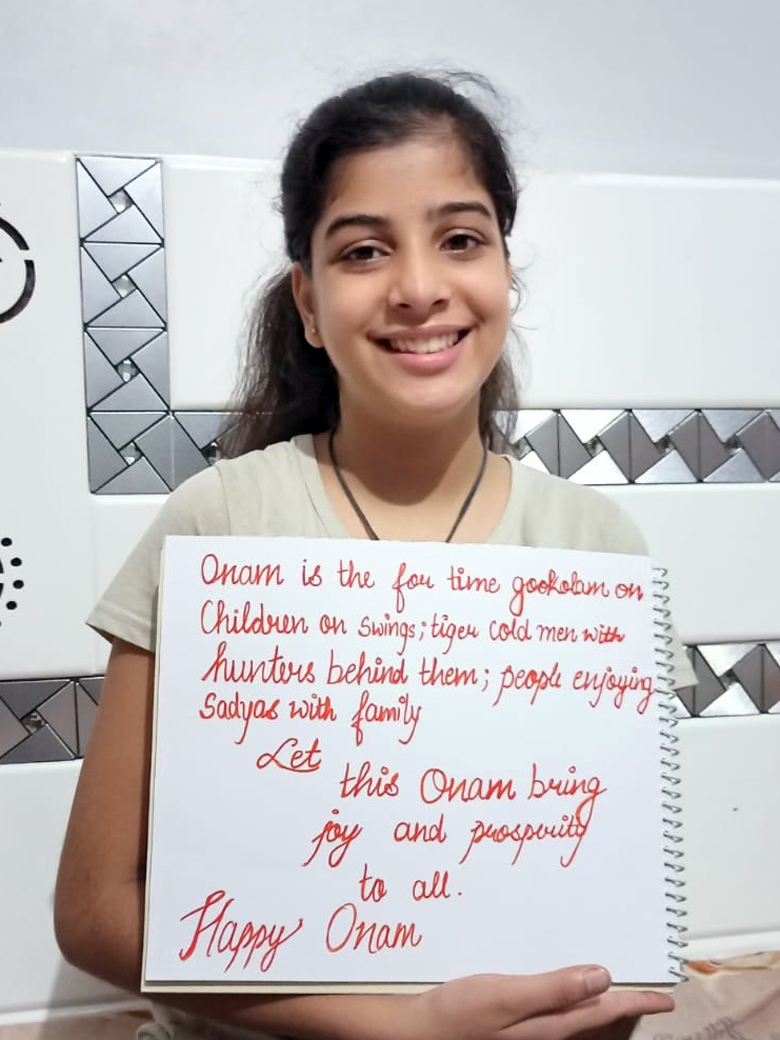 Onam is the for time gookolam on
Children on swings; tiger cold men with
hunters behind them; people enjoying
Sadyas with family
Let
this Onam bring
joy and prosperity
to all.
Happy Onam